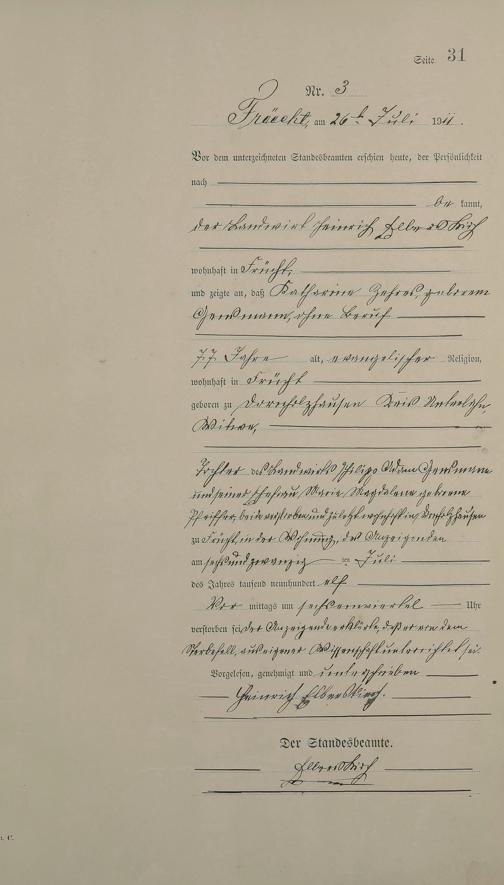 Seite 31
Nr. 3
Früecht, am 26t. Juli 1911.
Vor dem unterzeichneten Standesbeamten erschien heute, der Persönlichkeit
nach
be kannt,
der Landwirt Heinrich Elberskirch
wohnhaft in Früecht,
und zeigte an, daß Katharine Zehres, geborene
Gensmann, ohne Beruf
77 Jahre alt, evangelischer Religion,
wohnhaft in Früecht
geboren zu Dornholzhausen Kreis Unterlahn,
Witwe,
Tochter des Landwirts Philipp Adam Gensmann
und seiner Ehefrau, Marie Magdalene geborene
Pfeiffer, beide verstorben und zuletzt wohnhaft in Dornholzhausen
zu Früecht, in der Wohnung, des Anzeigenden
am sechsundzwanzig ten Juli
des Jahres tausend neunhundert elf
Vor mittags um sechseinviertel Uhr
verstorben sei, der Anzeigende erklärte, daß er von dem
Sterbefall, aus eigener Wissenschaft unterrichtet sei.
Vorgelesen, genehmigt und unterschrieben
Heinrich Elberskirch.
Der Standesbeamte.
Elberskirch